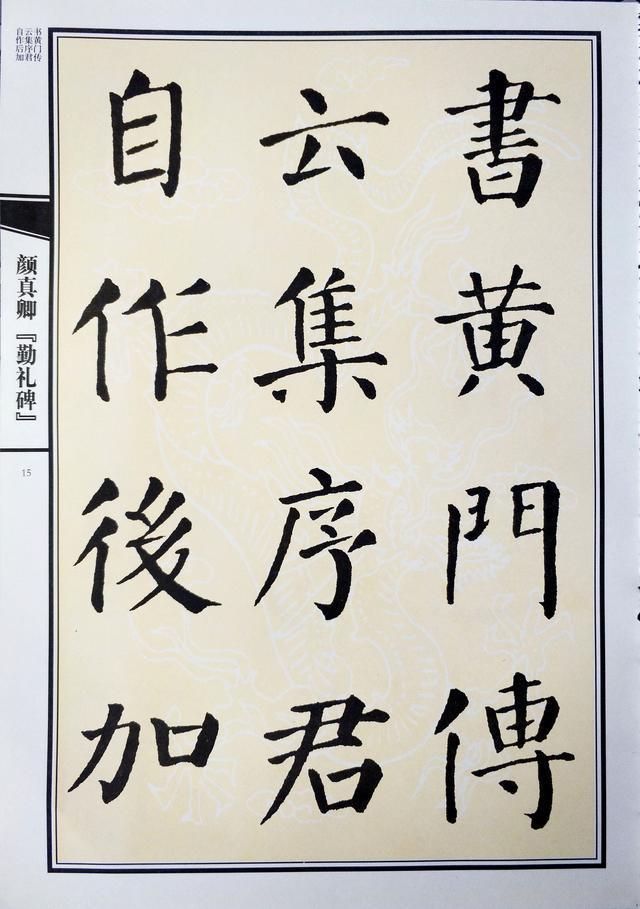 書黄門傳
云集序君
自作後加
书黄门传
云集序君
自作后加
颜真卿『勤礼碑』
15